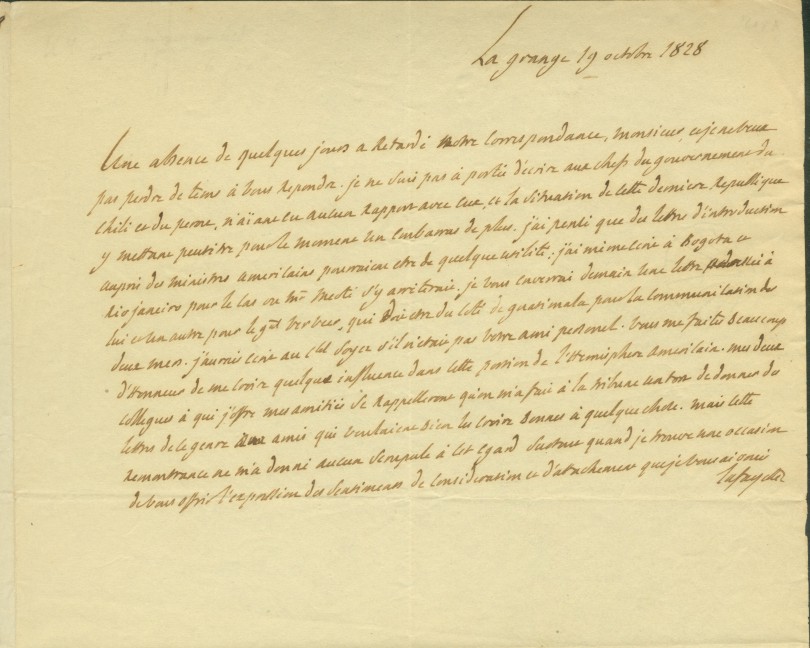 La grange 19 octobre 1828
Une absence de quelques jours a Retardé Notre Correspondance, monsieur, et je ne veux
pas perdre de tems à vous Repondre. je ne suis pas à portée d'écrire aux chefs du gouvernement du
chili et du perou, n'aiant eu aucun Rapport avec eux, et la situation de cette derniere Republique
y mettant peutêtre pour le moment un Embarras de plus. j'ai pensé que des lettres d'introduction
auprès des ministres americains pourraient etre de quelque utilité. j'ai même écrit à Bogota et
Rio janeiro pour le cas ou Mr s'y arreterait. je vous enverrai demain une lettre adressée à
lui et un autre pour le gal verveer, qui doit etre du coté de guatimala pour la communication des
deux mers. j'aurais écrit au s'il n'etait pas votre ami personel. vous me faites Beaucoup
d'honneur de me croire quelque influence dans cette portion de l'Hemisphere americain. mes deux
collegues à qui j'offre mes amitiés se rappelleront qu'on m'a fait à la tribune un tort de donner des
lettres de ce genre aux amis qui voulaient Bien les croire Bonnes à quelque chose. mais cette
Remontrance ne m'a donné aucun scrupule à cet egard surtout quand je trouve une occasion
de vous offrir l'expression des sentiments de consideration et d'attachement que je vous ai voués
lafayette